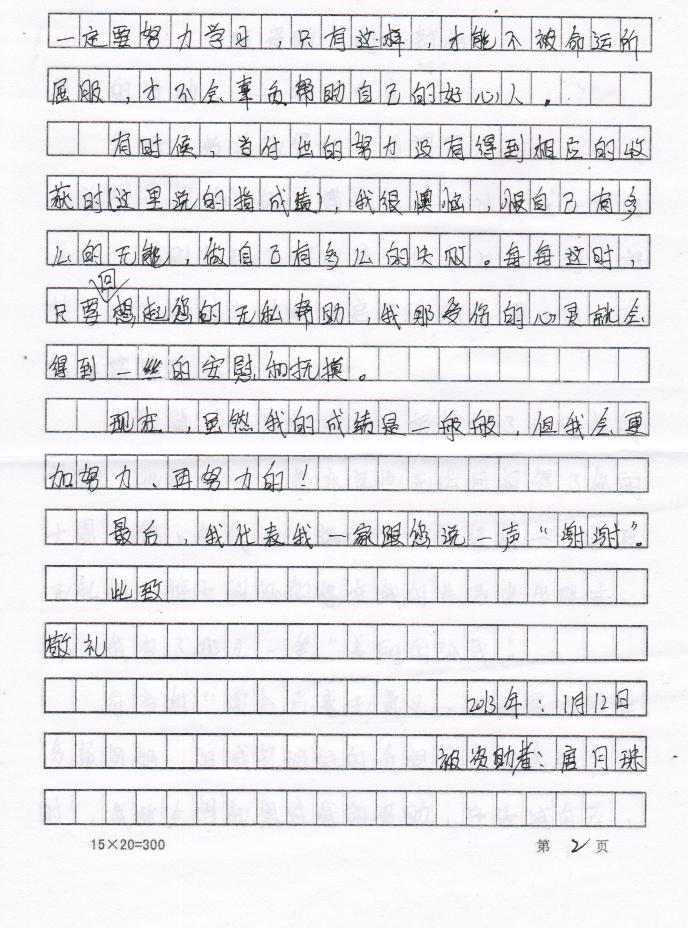 一定要努力学习，只有这样，才能不被命运所
屈服，才不会辜负帮助自己的好心人。
有时候，当付出的努力没有得到相应的收
获时(这里说的指成绩)，我很懊恼，恨自己有多
么的无能，做自己有多么的失败。每每这时，
只要想回起您的无私帮助，我那受伤的心灵就会
得到一丝的安慰和抚摸。
现在，虽然我的成绩是一般般，但我会更
加努力，再努力的！
最后，我代表我一家跟您说一声“谢谢”。
此致
敬礼
2013年：1月12日
被资助者：唐月珠
15×20=300
第 2 页